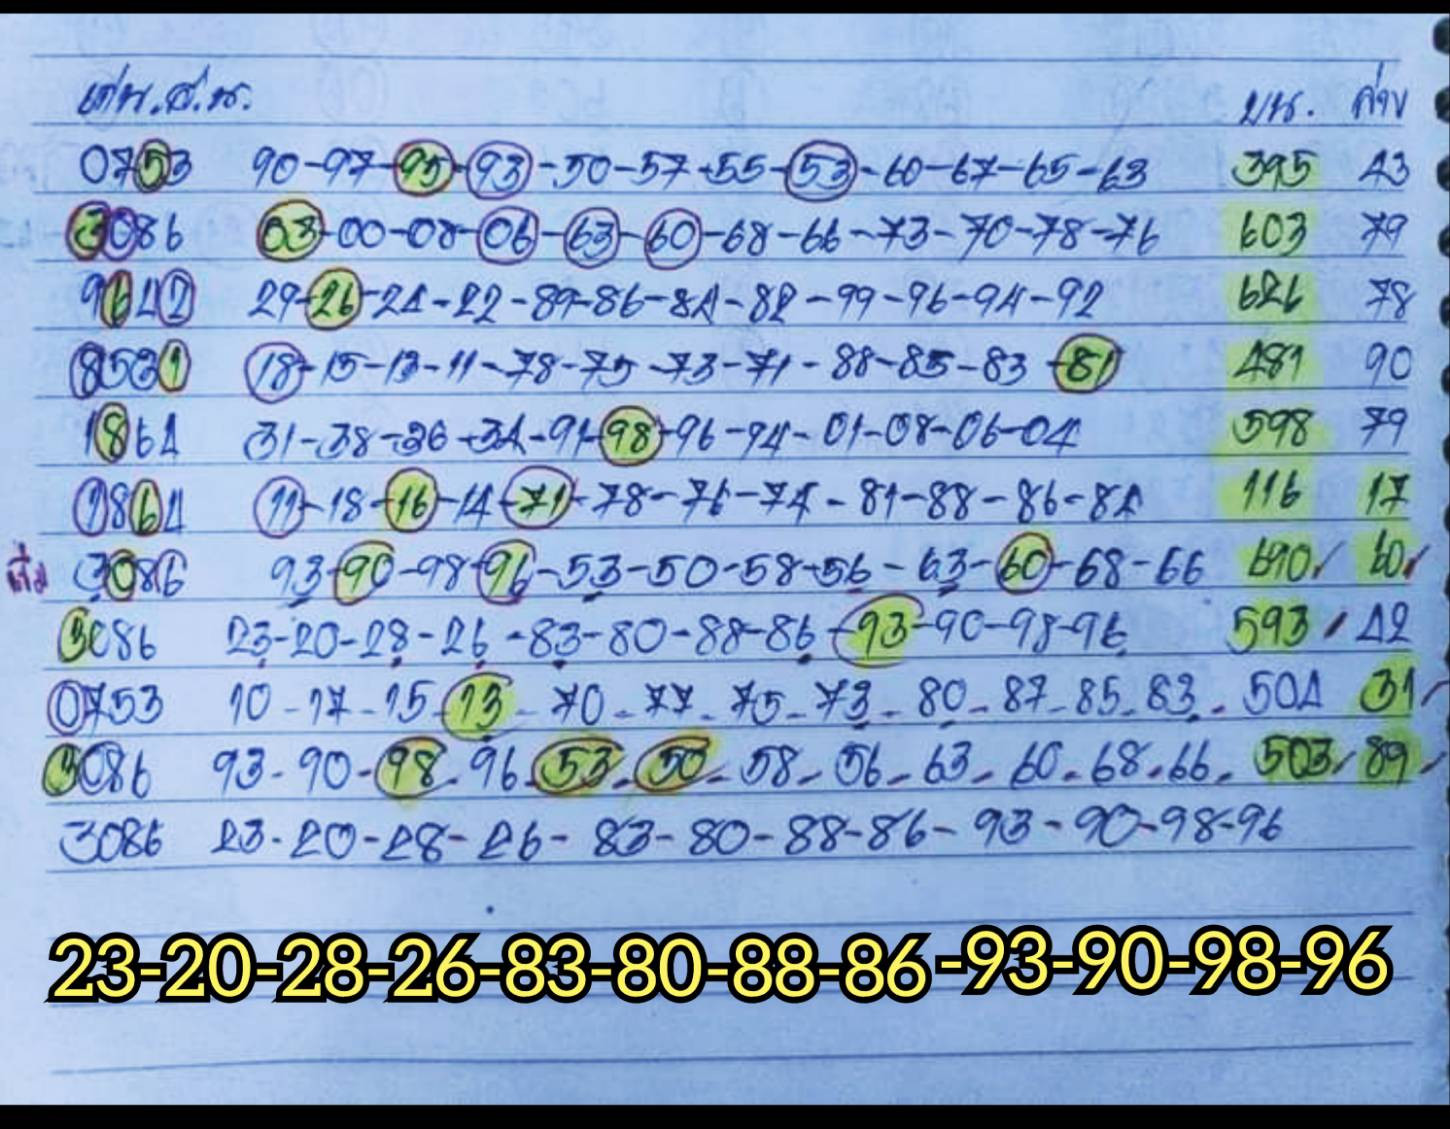 บน. ล่าง
0753 90-97-95-93-50-57-55-53-60-67-65-63 395 43
3086 03-00-08-06-63-60-68-66-73-70-78-76 603 79
9642 29-26-24-22-89-86-84-82-99-96-94-92 626 78
8531 18-15-13-11-78-75-73-71-88-85-83-81 481 90
1864 31-38-36-34-91-98-96-94-01-08-06-04 598 79
1864 11-18-16-14-71-78-76-74-81-88-86-84 116 17
เริ่ม 3086 93-90-98-96-53-50-58-56-63-60-68-66 690 60
3086 23-20-28-26-83-80-88-86-93-90-98-96 593 42
0753 10-17-15-13-70-77-75-73-80-87-85-83 504 31
3086 93-90-98-96-53-50-58-56-63-60-68-66 503 89
3086 23-20-28-26-83-80-88-86-93-90-98-96
23-20-28-26-83-80-88-86-93-90-98-96